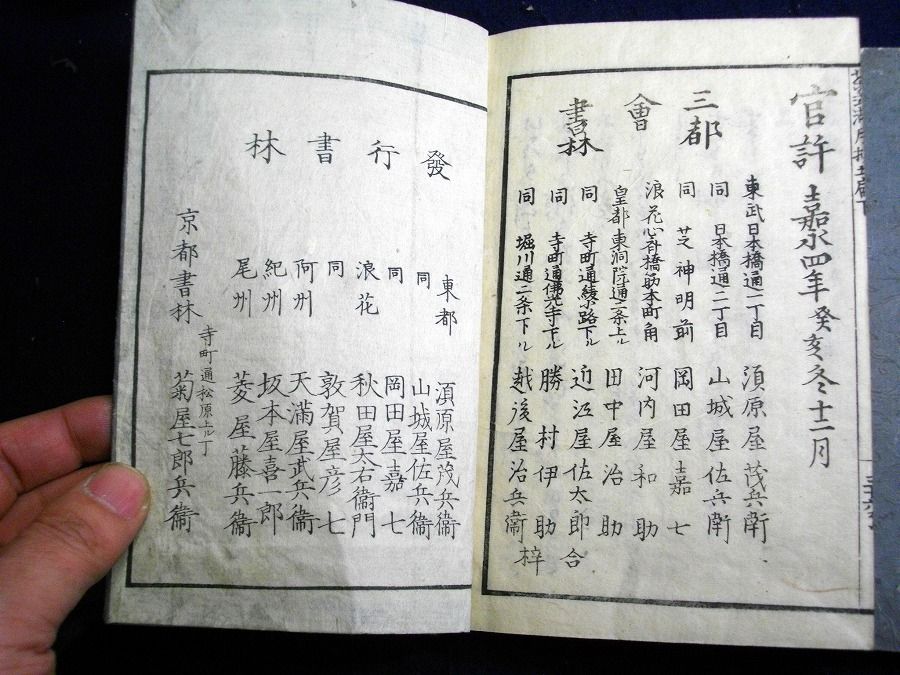 官許 嘉永四年癸亥冬十二月
三都
會
書林
東武日本橋通一丁目 須原屋茂兵衛
同 日本橋通二丁目 山城屋佐兵衛
同 芝神明前 岡田屋嘉七
浪花心斉橋筋本町角 河内屋和助
皇都東洞院通二条上ル 田中屋治助
同 寺町通綾小路下ル 近江屋佐太郎
同 寺町通佛光寺下ル 勝村伊助
同 堀川通二条下ル 越後屋治兵衛
合梓
發行書林
東都 須原屋茂兵衛
同 山城屋佐兵衛
同 岡田屋嘉七
浪花 秋田屋太右衛門
同 敦賀屋彦七
阿州 天満屋武兵衛
紀州 坂本屋喜一郎
尾州 菱屋藤兵衛
京都書林 寺町通松原上ル丁 菊屋七郎兵衛